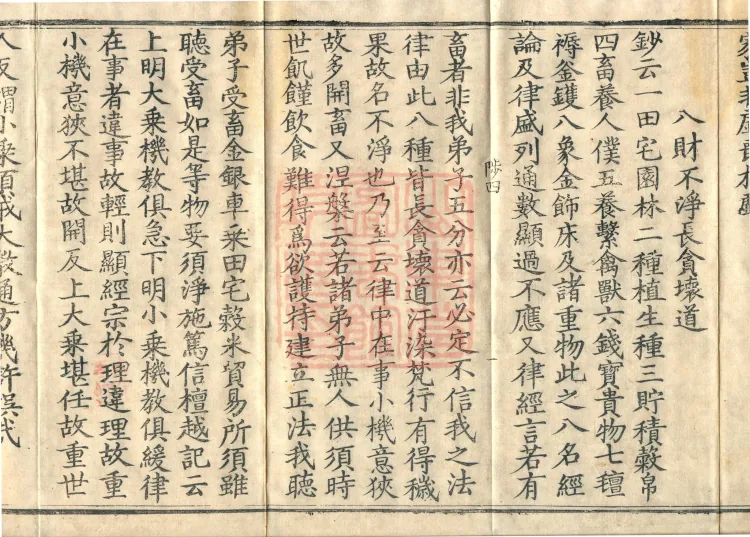 八財不淨長貪壞道
鈔云一田宅園林二種植生種三貯積穀帛
四畜養人僕五養繫禽獸六錢寶貴物七氊
褥釜鑊八象金飾床及諸重物此之八名經
論及律盛列通數顯過不應又律經言若有
陟四
畜者非我弟子五分亦云必定不信我之法
律由此八種皆長貪壞道汙染梵行有得穢
果故名不淨也乃至云律中在事小機意狹
故多開畜又涅槃云若諸弟子無人供須時
世飢饉飲食難得爲欲護持建立正法我聽
弟子受畜金銀車乘田宅穀米貿易所須雖
聽受畜如是等物要須淨施篤信檀越記云
上明大乘機教俱急下明小乘機教俱緩律
在事者違事故輕則顯經宗於理違理故重
小機意狹不堪故開反上大乘堪任故重世
人反謂小乘須戒大教通方幾許誤哉